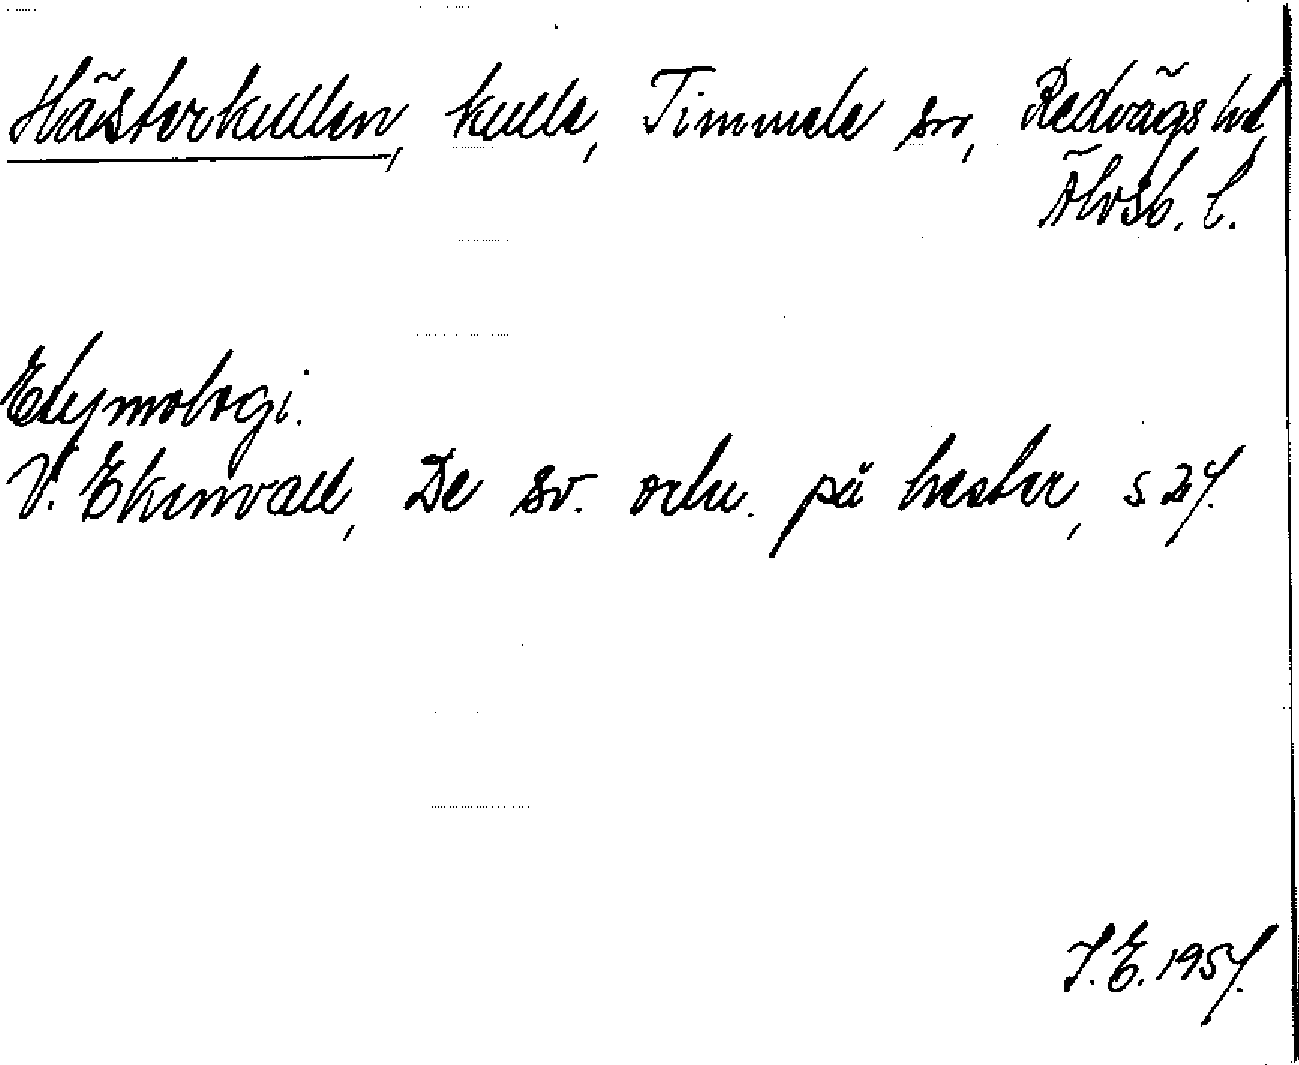 Hästerkullen, kulle, Timmele sn, Redvägs hd,
Älvsb. l.
Etymologi.
V. Ekenvall, De sv. ortn. på hester, s 27.
I.E. 1957.